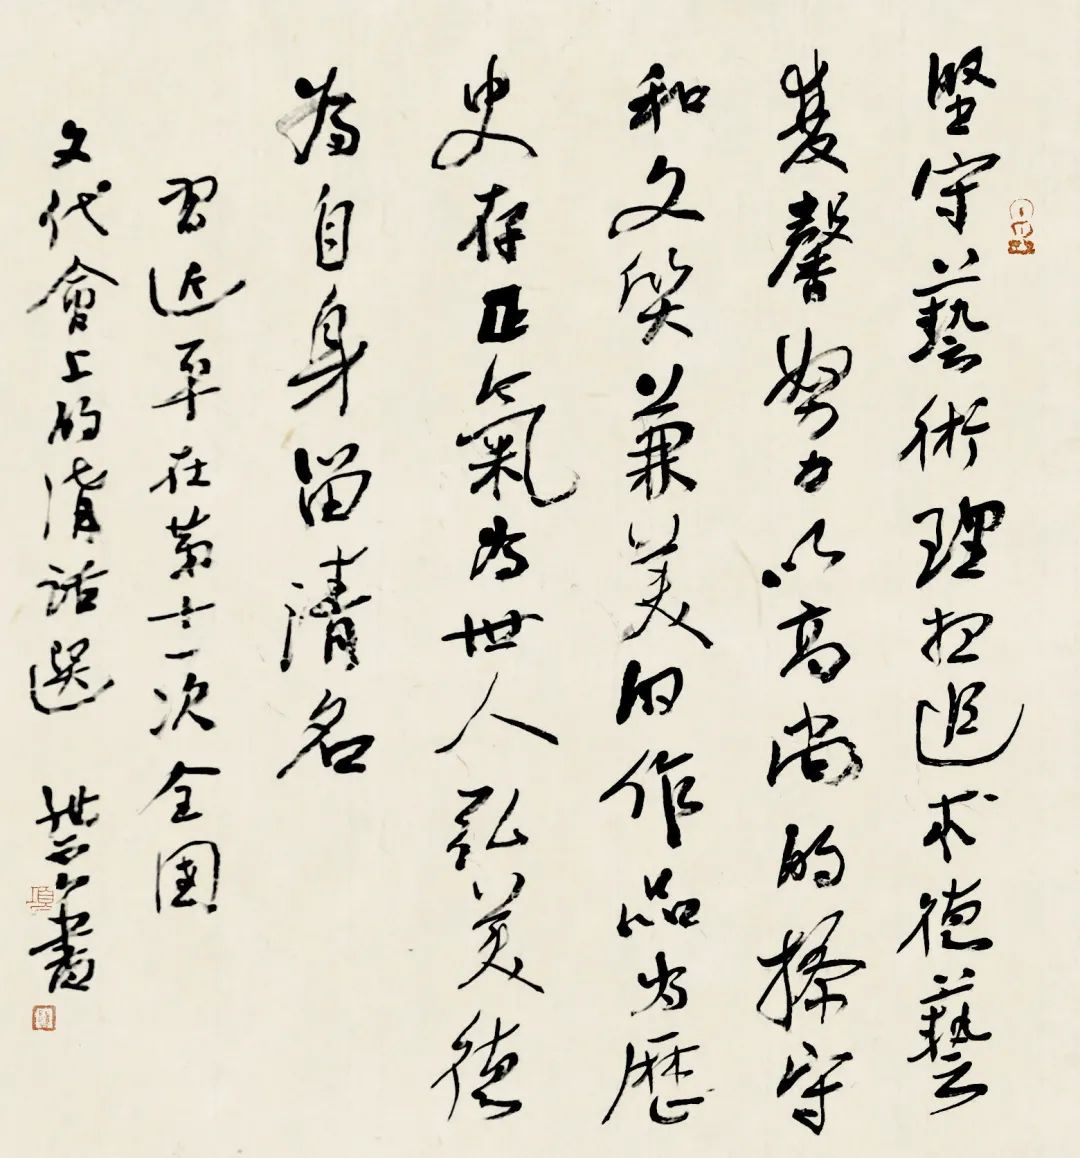 堅守藝術理想追求德藝
雙馨努力以高尚的操守
和文質兼美的作品為歷
史存正氣為世人弘美德
為自身留清名
習近平在第十一次全國
文代會上的講話選 書